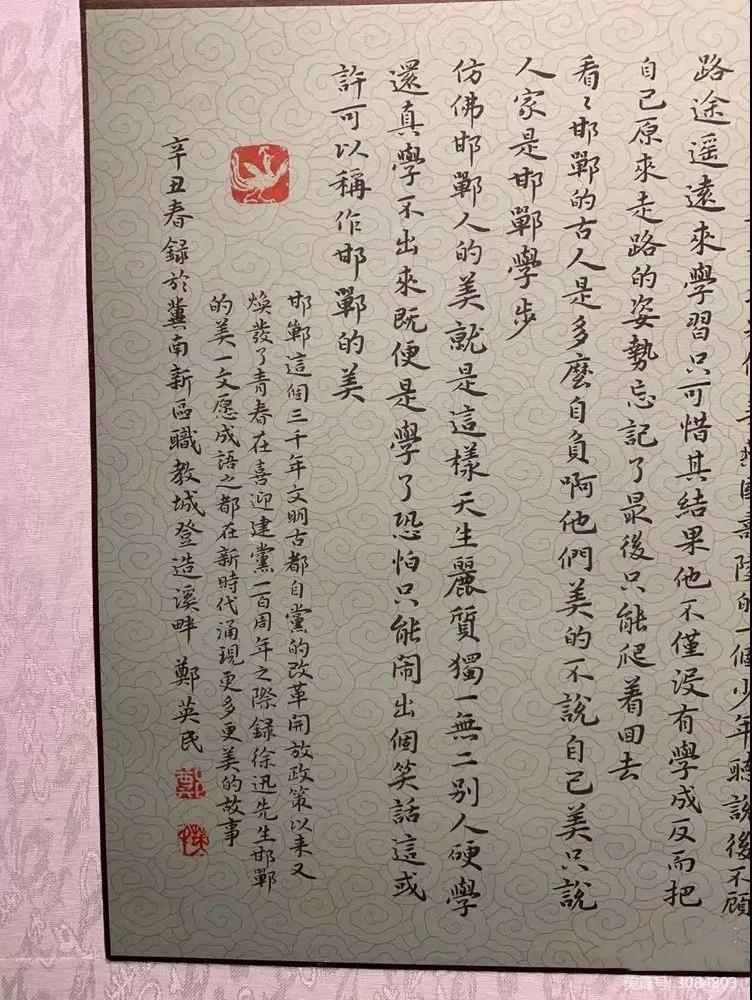 國壽陵的一個少年聽説後不顧
路途遥遠來學習只可惜其結果他不僅没有學成反而把
自己原來走路的姿勢忘記了最後只能爬着回去
看〻邯鄲的古人是多麽自負啊他們美的不説自己美只説
人家是邯鄲學步
仿佛邯鄲人的美就是這樣天生麗質獨一無二别人硬學
還真學不出來既便是學了恐怕只能闹出個笑話這或
許可以稱作邯鄲的美
邯鄲這個三千年文明古都自黨的改革開放政策以来又
焕發了青春在喜迎建黨一百周年之際録徐迅先生邯鄲
的美一文愿成語之都在新時代涌現更多更美的故事
辛丑春録於冀南新區職教城登造溪畔 鄭英民
鄭
美篇号 3084803